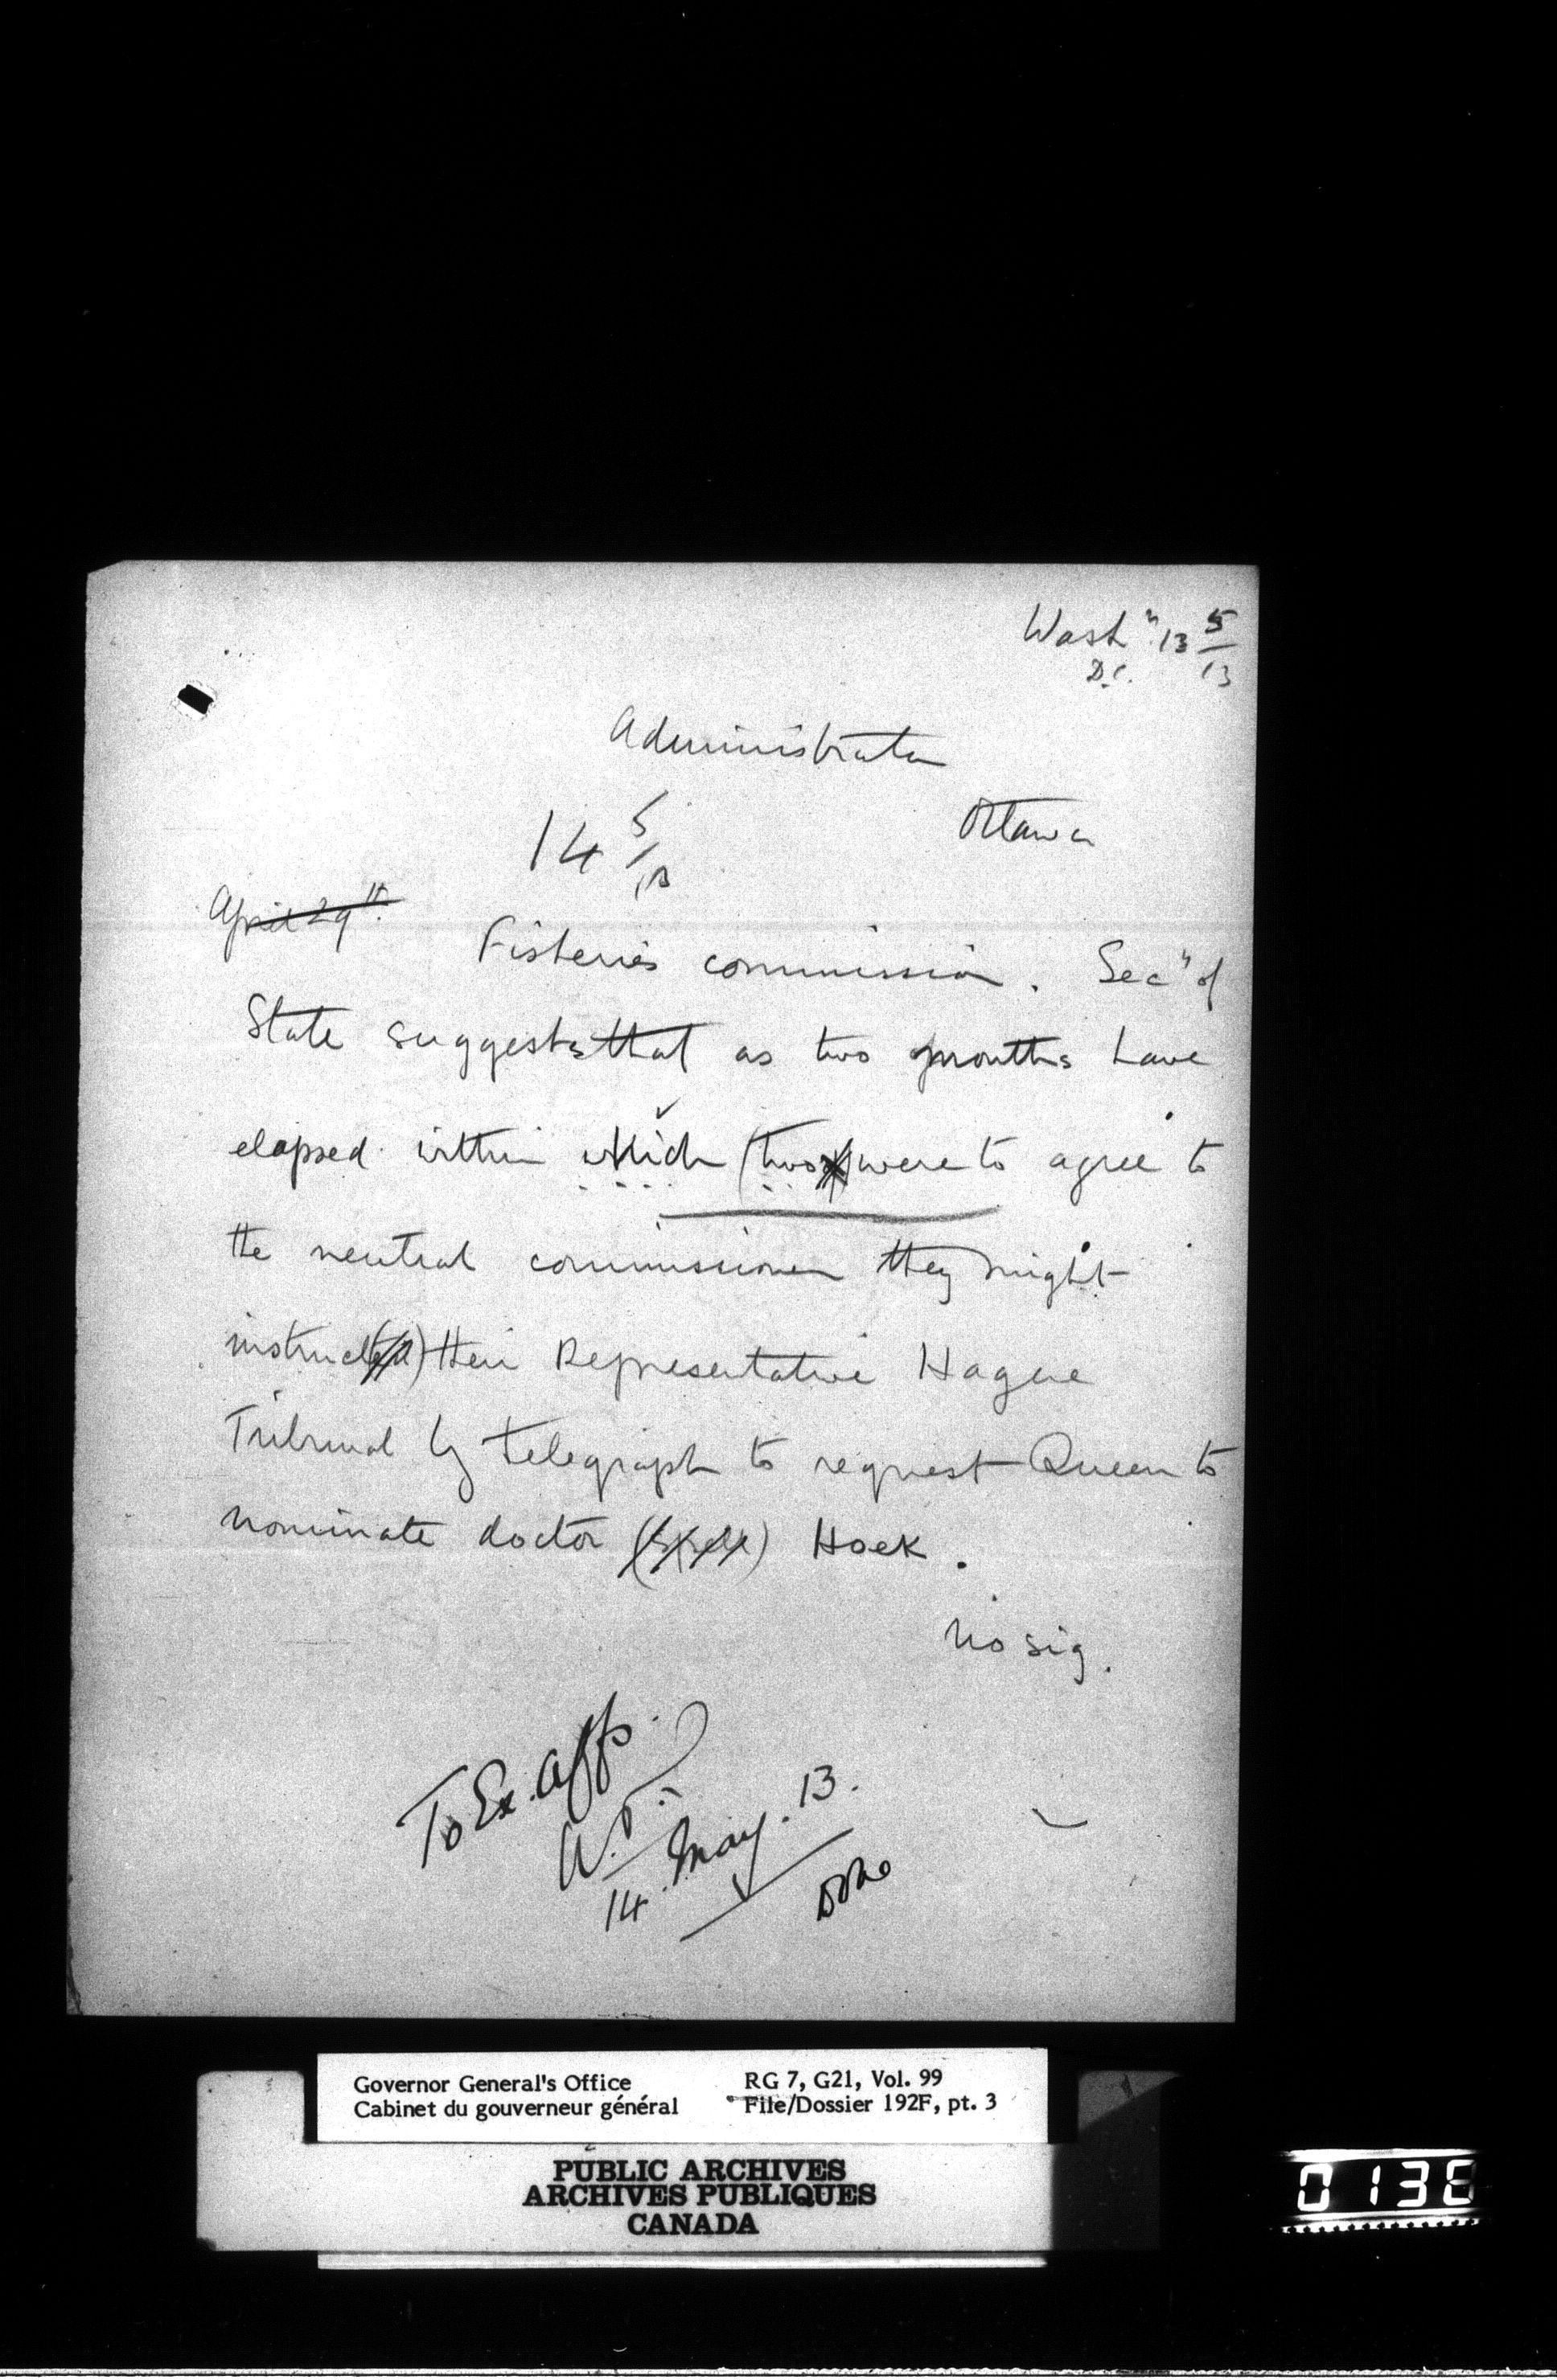 Wash" 13 5/13
D.C.
Administrator
14 5/13
Ottawa
April 29th.
Fisheries commission. Sec" of
State suggests that as two months have
elapsed within which (two) were to agree to
the neutral commissioner they might
instruct(ed) their Representative Hague
Tribunal by telegraph to request Queen to
nominate doctor Hoek.
No sig.
To Ex. Affs.
14. May. 13.
Done
Governor General's Office
Cabinet du gouverneur général
RG 7, G21, Vol. 99
File/Dossier 192F, pt. 3
PUBLIC ARCHIVES
ARCHIVES PUBLIQUES
CANADA